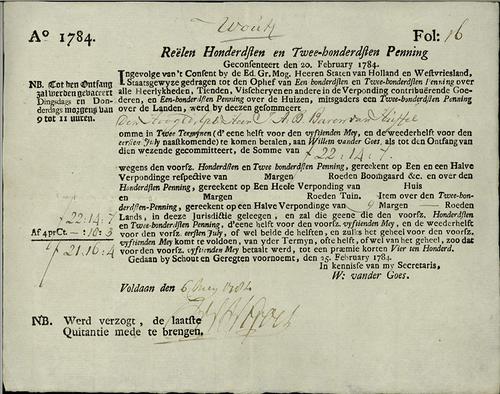 Wouh
A° 1784.
Fol: 16
Reëlen Honderdsten en Twee-honderdsten Penning
Geconsenteert den 20. February 1784.
NB. Tot den Ontfang zal werden gevaceert Dingsdags en Donderdags morgens van 9 tot 11 uuren.
Ingevolge van't Consent by de Ed. Gr. Mog. Heeren Staten van Holland en Westvriesland,
Staatsgewyze gedragen tot den Ophef van Een honderdsten en Twee-honderdsten Penning over
alle Heerlykheden, Tienden, Visscheryen en andere in de Verponding contribuërende Goe-
deren, en Een-honderdsten Penning over de Huizen, mitsgaders een Twee-honderdsten Penning
over de Landen, werd by deezen gesommeert
Den Hoog Ed. Geb. Heer J. A. B. Baron van
omme in Twee Termynen (d'eene helft voor den vyftienden Mey, en de weederhelft voor den
eersten July naastkomende) te komen betalen, aan Willem vander Goes, als tot den Ontfang van
dien wezende gecommitteert, de Somme van ƒ 22:14:7.
wegens den voorsz. Honderdsten en Twee honderdsten Penning, gereekent op Een en een Halve
Verpondinge respective van Margen Roeden Boomgaard &c. en over den
Honderdsten Penning, gereekent op Een Heele Verponding van Huis
en Margen Roeden Tuin. Item over den Twee-hon-
derdsten-Penning, gereekent op een Halve Verpondinge van 9 Margen — Roeden
Lands, in deeze Jurisdictie geleegen, en zal die geene die den voorsz. Honderdsten
en Twee-honderdsten Penning, d'eene helft voor den voorsz. vyftienden Mey, en de wederhelft
voor den voorsz. eersten July, of wel beide de helften, en zulks het geheel voor den voorsz.
vyftienden Mey komt te voldoen, van yder Termyn, ofte helft, of wel van het geheel, zoo dat
voor den voorsz. vyftienden Mey betaalt werd, tot een præmie korten Vier ten Honderd.
ƒ 22:14:7
Af 4 prCt. - :18:3
ƒ 21:16:4
Gedaan by Schout en Geregten voornoemt, den 25. February 1784.
In kennisse van my Secretaris,
W: vander Goes.
Voldaan den 6 Mey 1784
NB. Werd verzogt, de laatste
Quitantie mede te brengen.